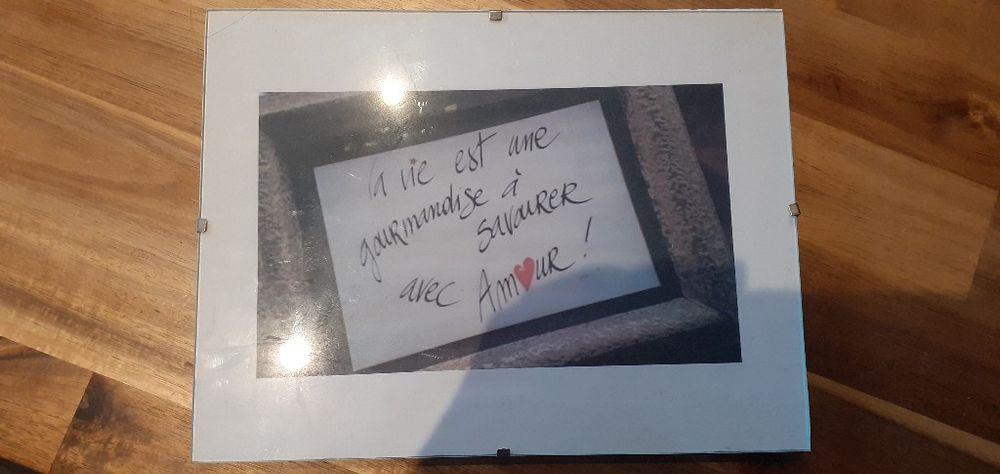 la vie est une
gourmandise à
savourer
avec Am♥ur !